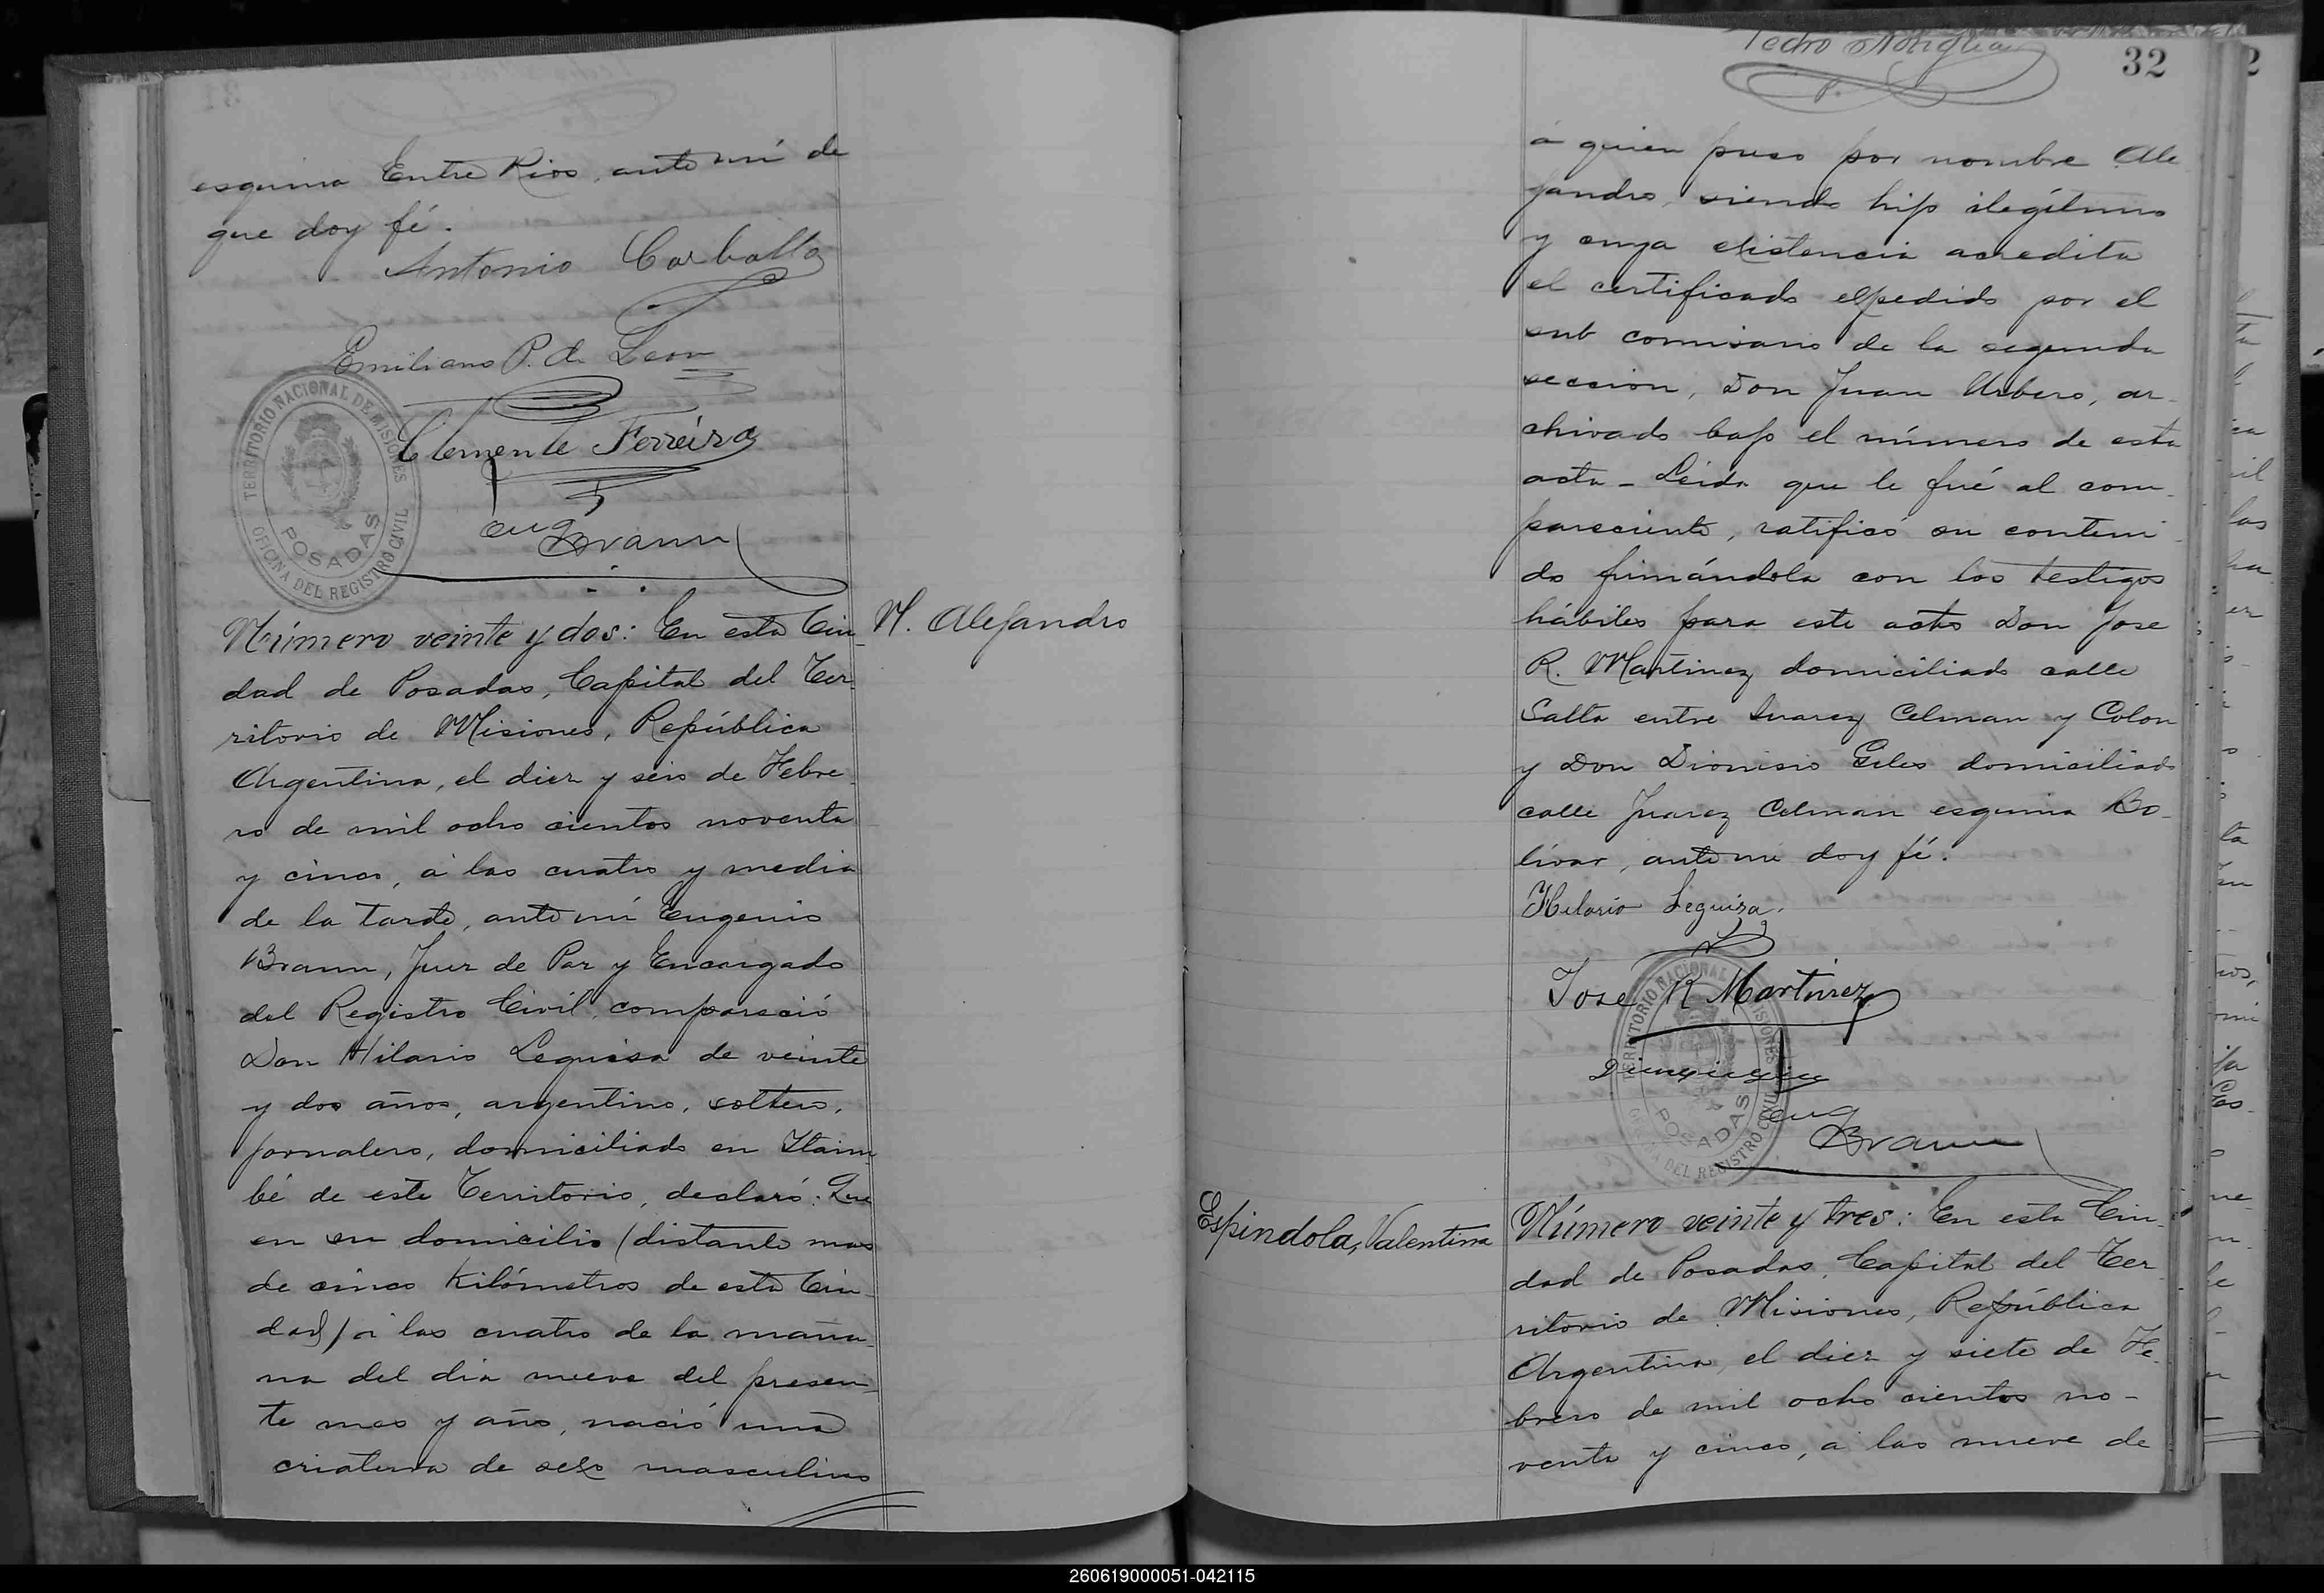 esquina Entre Rios, ante mí de
que doy fé.
Antonio Carballo
Emiliano P. de Leon
Clemente Ferreira
Eug Braun
TERRITORIO NACIONAL DE MISIONES
POSADAS
OFICINA DEL REGISTRO CIVIL
Número veinte y dos: En esta Ciu-
dad de Posadas, Capital del Ter-
ritorio de Misiones, República
Argentina, el diez y seis de Febre-
ro de mil ocho cientos noventa
y cinco, á las cuatro y media
de la tarde, ante mí Eugenio
Braun, Juez de Paz y Encargado
del Registro Civil, compareció
Don Hilario Leguisa de veinte
y dos años, argentino, soltero,
jornalero, domiciliado en Itaim-
bé de este Territorio, declaró: Que
en su domicilio (distante mas
de cinco Kilómetros de esta Ciu-
dad) á las cuatro de la maña-
na del dia nueve del presen-
te mes y año, nació una
criatura de sexo masculino
N. Alejandro
Pedro
32
á quien puso por nombre Ale
jandro, siendo hijo ilegítimo
y cuya existencia acredita
el certificado espedido por el
sub comisario de la segunda
seccion, Don Juan Arbero, ar-
chivado bajo el número de esta
acta - Leida que le fué al com-
pareciente, ratificó su conteni-
do firmándola con los testigos
hábiles para este acto Don Jose
R. Martinez domiciliado calle
Salta entre Juarez Celman y Colon
y Don Dionisio Giles domiciliado
calle Juarez Celman esquina Bo-
lívar, ante mí doy fé.
Hilario Leguisa.
Jose R Martinez
TERRITORIO NACIONAL MISIONES
POSADAS
OFICINA DEL REGISTRO CIVIL
Eug
Braun
Espindola, Valentina
Número veinte y tres: En esta Ciu-
dad de Posadas, Capital del Ter-
ritorio de Misiones, República
Argentina, el diez y siete de Fe-
brero de mil ocho cientos no-
venta y cinco, á las nueve de
260619000051-042115